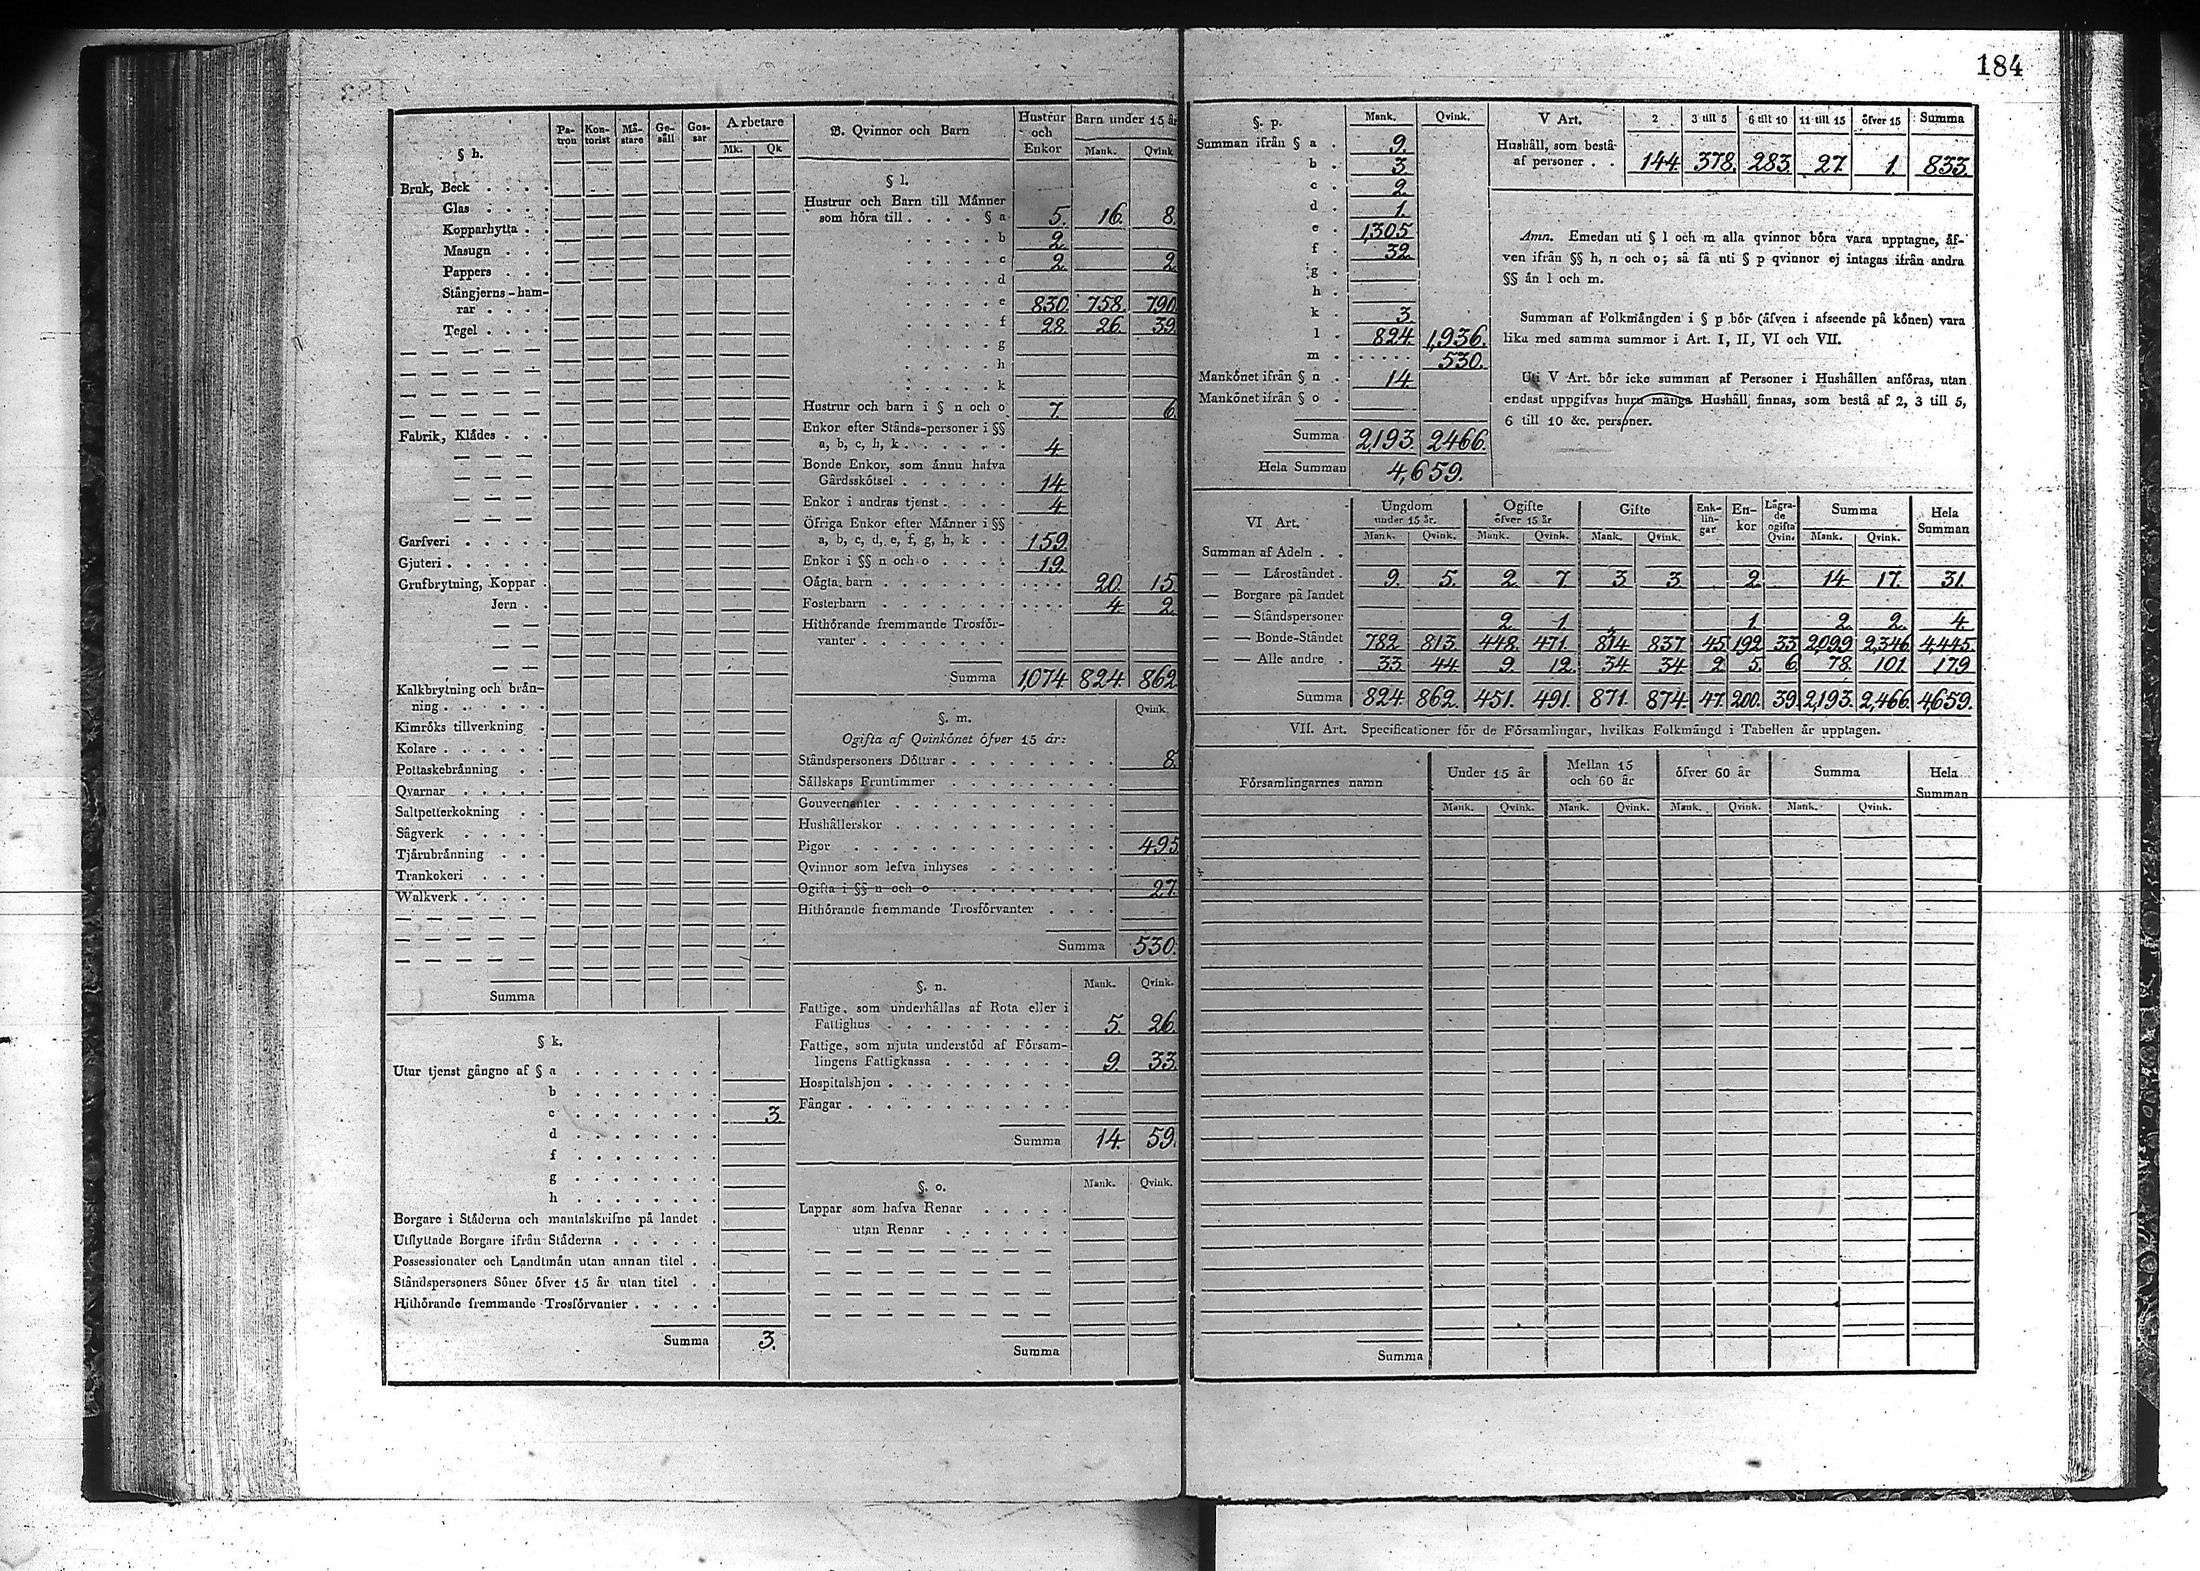 184
§ h.
Patron Kontorist Mästare Gesäll Gossar Arbetare
Mk. Qk
Bruk, Beck . . . .
Glas . . . .
Kopparhytta . .
Masugn . . .
Pappers . . .
Stångjerns-ham-
rar . . . .
Tegel . . . .
Fabrik, Klådes . . .
Garfveri . . . . .
Gjuteri . . . . . .
Grufbrytning, Koppar .
Jern . .
Kalkbrytning och brån-
ning . . . . . .
Kimróks tillverkning .
Kolare . . . . . .
Pottaskebrånning . .
Qvarnar . . . . .
Saltpetterkokning . .
Sågverk . . . . .
Tjårubrånning . . .
Trankokeri . . . .
Walkverk . . . . .
Summa
§ k.
Utur tjenst gångne af § a . . . . . . .
b . . . . . . .
c . . . . . . . 3.
d . . . . . . .
f . . . . . . .
g . . . . . . .
h . . . . . . .
Borgare i Städerna och mantalskrifne på landet .
Utflyttade Borgare ifrån Städerna . . . . .
Possessionater och Landtmån utan annan titel .
Ståndspersoners Sóner ófver 15 år utan titel . .
Hithórande fremmande Trosfórvanter . . . . .
Summa 3.
B. Qvinnor och Barn
Hustrur och Enkor Barn under 15 år
Mank. Qvink
§ l.
Hustrur och Barn till Månner
som hóra till . . . . § a 5. 16. 8.
. . . . . b 2.
. . . . . c 2. 2.
. . . . . d
. . . . . e 830. 758. 790.
. . . . . f 28. 26. 39.
. . . . . g
. . . . . h
. . . . . k
Hustrur och barn i § n och o 7. 6.
Enkor efter Stånds-personer i §§
a, b, c, h, k . . . . . . 4.
Bonde Enkor, som ånnu hafva
Gårdsskótsel . . . . . . 14.
Enkor i andras tjenst . . . . 4.
Öfriga Enkor efter Månner i §§
a, b, c, d, e, f, g, h, k . . 159.
Enkor i §§ n och o . . . . . 19.
Oågta barn . . . . . . . . . . . 20. 15.
Fosterbarn . . . . . . . . . . . 4. 2.
Hithórande fremmande Trosfór-
vanter . . . . . . . .
Summa 1,074. 824. 862.
§. m.
Qvink.
Ogifta af Qvinkónet ófver 15 år:
Ståndspersoners Dóttrar . . . . . . . . . 8.
Sållskaps Fruntimmer . . . . . . . . .
Gouvernanter . . . . . . . . . . .
Hushållerskor . . . . . . . . . . .
Pigor . . . . . . . . . . . . . 495.
Qvinnor som lefva inhyses . . . . . . .
Ogifta i §§ n och o . . . . . . . . . 27.
Hithórande fremmande Trosfórvanter . . . .
Summa 530.
§. n.
Mank. Qvink.
Fattige, som underhållas af Rota eller i
Fattighus . . . . . . . . . . 5. 26.
Fattige, som njuta understód af Fórsam-
lingens Fattigkassa . . . . . . . 9. 33.
Hospitalshjon . . . . . . . . . .
Fångar . . . . . . . . . . . .
Summa 14. 59.
§. o.
Mank. Qvink.
Lappar som hafva Renar . . . . .
utan Renar . . . . . .
Summa
§. p.
Mank. Qvink.
Summan ifrån § a . 9.
b . 3.
c . 2.
d . 1.
e . 1,305
f . 32.
g .
h .
k . 3.
l . 824. 1,936.
m . . . . . . . 530.
Mankónet ifrån § n . 14.
Mankónet ifrån § o .
Summa 2,193. 2466.
Hela Summan 4,659.
V Art. 2 3 till 5 6 till 10 11 till 15 ófver 15 Summa
Hushåll, som bestå
af personer . . 144. 378. 283. 27. 1. 833.
Amn. Emedan uti § l och m alla qvinnor bóra vara upptagne, åf-
ven ifrån §§ h, n och o; så få uti § p qvinnor ej intagas ifrån andra
§§ ån l och m.
Summan af Folkmångden i § p bór (åfven i afseende på kónen) vara
lika med samma summor i Art. I, II, VI och VII.
Uti V Art. bór icke summan af Personer i Hushållen anfóras, utan
endast uppgifvas huru många Hushåll finnas, som bestå af 2, 3 till 5,
6 till 10 &c. personer.
VI Art. Ungdom under 15 år. Ogifte ófver 15 år Gifte Enklingar Enkor Lågrade ogifta Qvin. Summa Hela Summan
Mank. Qvink. Mank. Qvink. Mank. Qvink. Mank. Qvink.
Summan af Adeln . .
— — Låroståndet . 9. 5. 2 7. 3 3 2. 14. 17. 31.
— Borgare på landet
— — Ståndspersoner 2. 1. 1. 2. 2. 4.
— — Bonde-Ståndet 782 813. 448. 471. 814 837. 45 192 33 2,099 2,346 4,445.
— — Alle andre . 33 44 9 12. 34 34 2 5. 6 78. 101 179
Summa 824. 862. 451. 491. 871. 874. 47. 200. 39. 2,193. 2,466. 4,659.
VII. Art. Specificationer fór de Fórsamlingar, hvilkas Folkmångd i Tabellen år upptagen.
Fórsamlingarnes namn Under 15 år Mellan 15 och 60 år ófver 60 år Summa Hela Summan
Mank. Qvink. Mank. Qvink. Mank. Qvink. Mank. Qvink.
Summa